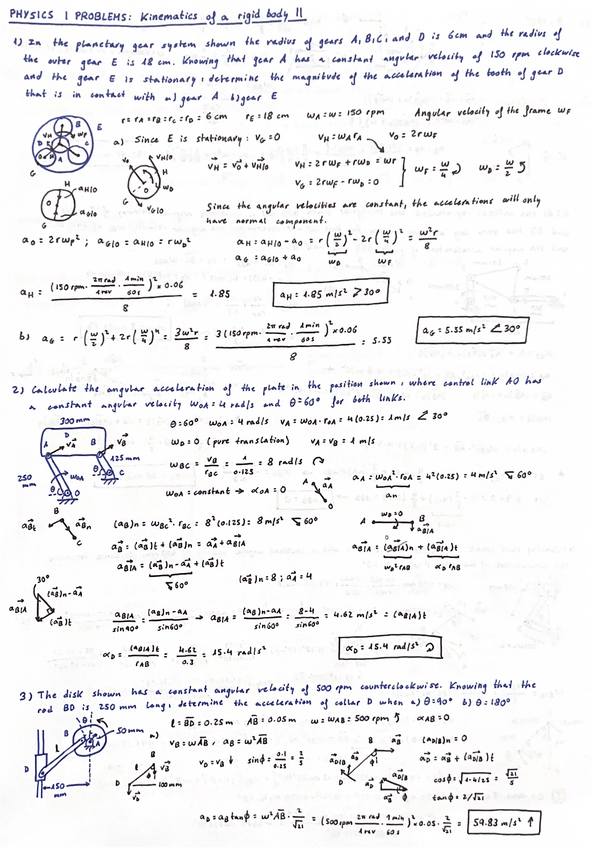 PHYSICS 1 PROBLEMS: Kinematics of a rigid body II
1) In the planetary gear system shown the radius of gears A, B, C, and D is 6cm and the radius of
the outer gear E is 18 cm. Knowing that gear A has a constant angular velocity of 150 rpm clockwise
and the gear E is stationary, determine the magnitude of the acceleration of the tooth of gear D
that is in contact with a) gear A b) gear E
r = rA = rB = rC = rD = 6 cm rE = 18 cm ωA = ω = 150 rpm Angular velocity of the frame ωF
a) Since E is stationary: vG = 0 vH = ωA rA vD = 2rωF
vH = vD + vH/D vH = 2rωF + rωD = ωr
vG = 2rωF - rωD = 0
ωF = ω/4 ωD = ω/2
Since the angular velocities are constant, the accelerations will only
have normal component.
aD = 2rωF² ; aG/D = aH/D = rωD² aH = aH/D - aD = r(ω/2)² - 2r(ω/4)² = ω²r/8
aG = aG/D + aD
aH = (150 rpm · 2π rad/1 rev · 1 min/60 s)² × 0.06 / 8 = 1.85 aH = 1.85 m/s² 30°
b) aG = r(ω/2)² + 2r(ω/4)⁴ = 3ω²r/8 = 3(150 rpm · 2π rad/1 rev · 1 min/60 s)² × 0.06 / 8 = 5.55 aG = 5.55 m/s² ∠30°
2) Calculate the angular acceleration of the plate in the position shown, where control link AO has
a constant angular velocity ωOA = 4 rad/s and θ = 60° for both links.
300 mm
D
A B
vA vB
125 mm
250 mm
ωOA
θ θ C
O
θ = 60° ωOA = 4 rad/s vA = ωOA · rOA = 4(0.25) = 1 m/s ∠30°
ωD = 0 (pure translation) vA = vB = 1 m/s
ωBC = vB/rBC = 1/0.125 = 8 rad/s
aA = ωOA² · rOA = 4²(0.25) = 4 m/s² 60°
an
ωOA = constant → αOA = 0
(aB)n = ωBC² · rBC = 8²(0.125) = 8 m/s² 60°
aB = (aB)t + (aB)n = aA + aB/A
aB/A = (aB/A)n + (aB/A)t
ωD² rAB αD rAB
aB/A = (aB)n - aA + (aB)t
60°
(aB)n = 8 ; aA = 4
30°
aB/A (aB)n - aA
(aB)t
aB/A / sin90° = (aB)n - aA / sin60° → aB/A = (aB)n - aA / sin60° = 8-4 / sin60° = 4.62 m/s² = (aB/A)t
αD = (aB/A)t / rAB = 4.62/0.3 = 15.4 rad/s² αD = 15.4 rad/s²
3) The disk shown has a constant angular velocity of 500 rpm counterclockwise. Knowing that the
rod BD is 250 mm long, determine the acceleration of collar D when a) θ = 90° b) θ = 180°
l = BD = 0.25 m AB = 0.05 m ω = ωAB = 500 rpm αAB = 0
50 mm
B A θ
l
D
150 mm
a)
vB = ωAB, aB = ω²AB
vD = vB ↓ sinϕ = 0.1/0.25 = 2/5
100 mm
(aD/B)n = 0
aD = aB + (aD/B)t
cosϕ = √1-4/25 = √21/5
tanϕ = 2/√21
aD = aB tanϕ = ω²AB 2/√21 = (500 rpm 2π rad/1 rev · 1 min/60 s)² 0.05 · 2/√21 = 59.83 m/s² ↑